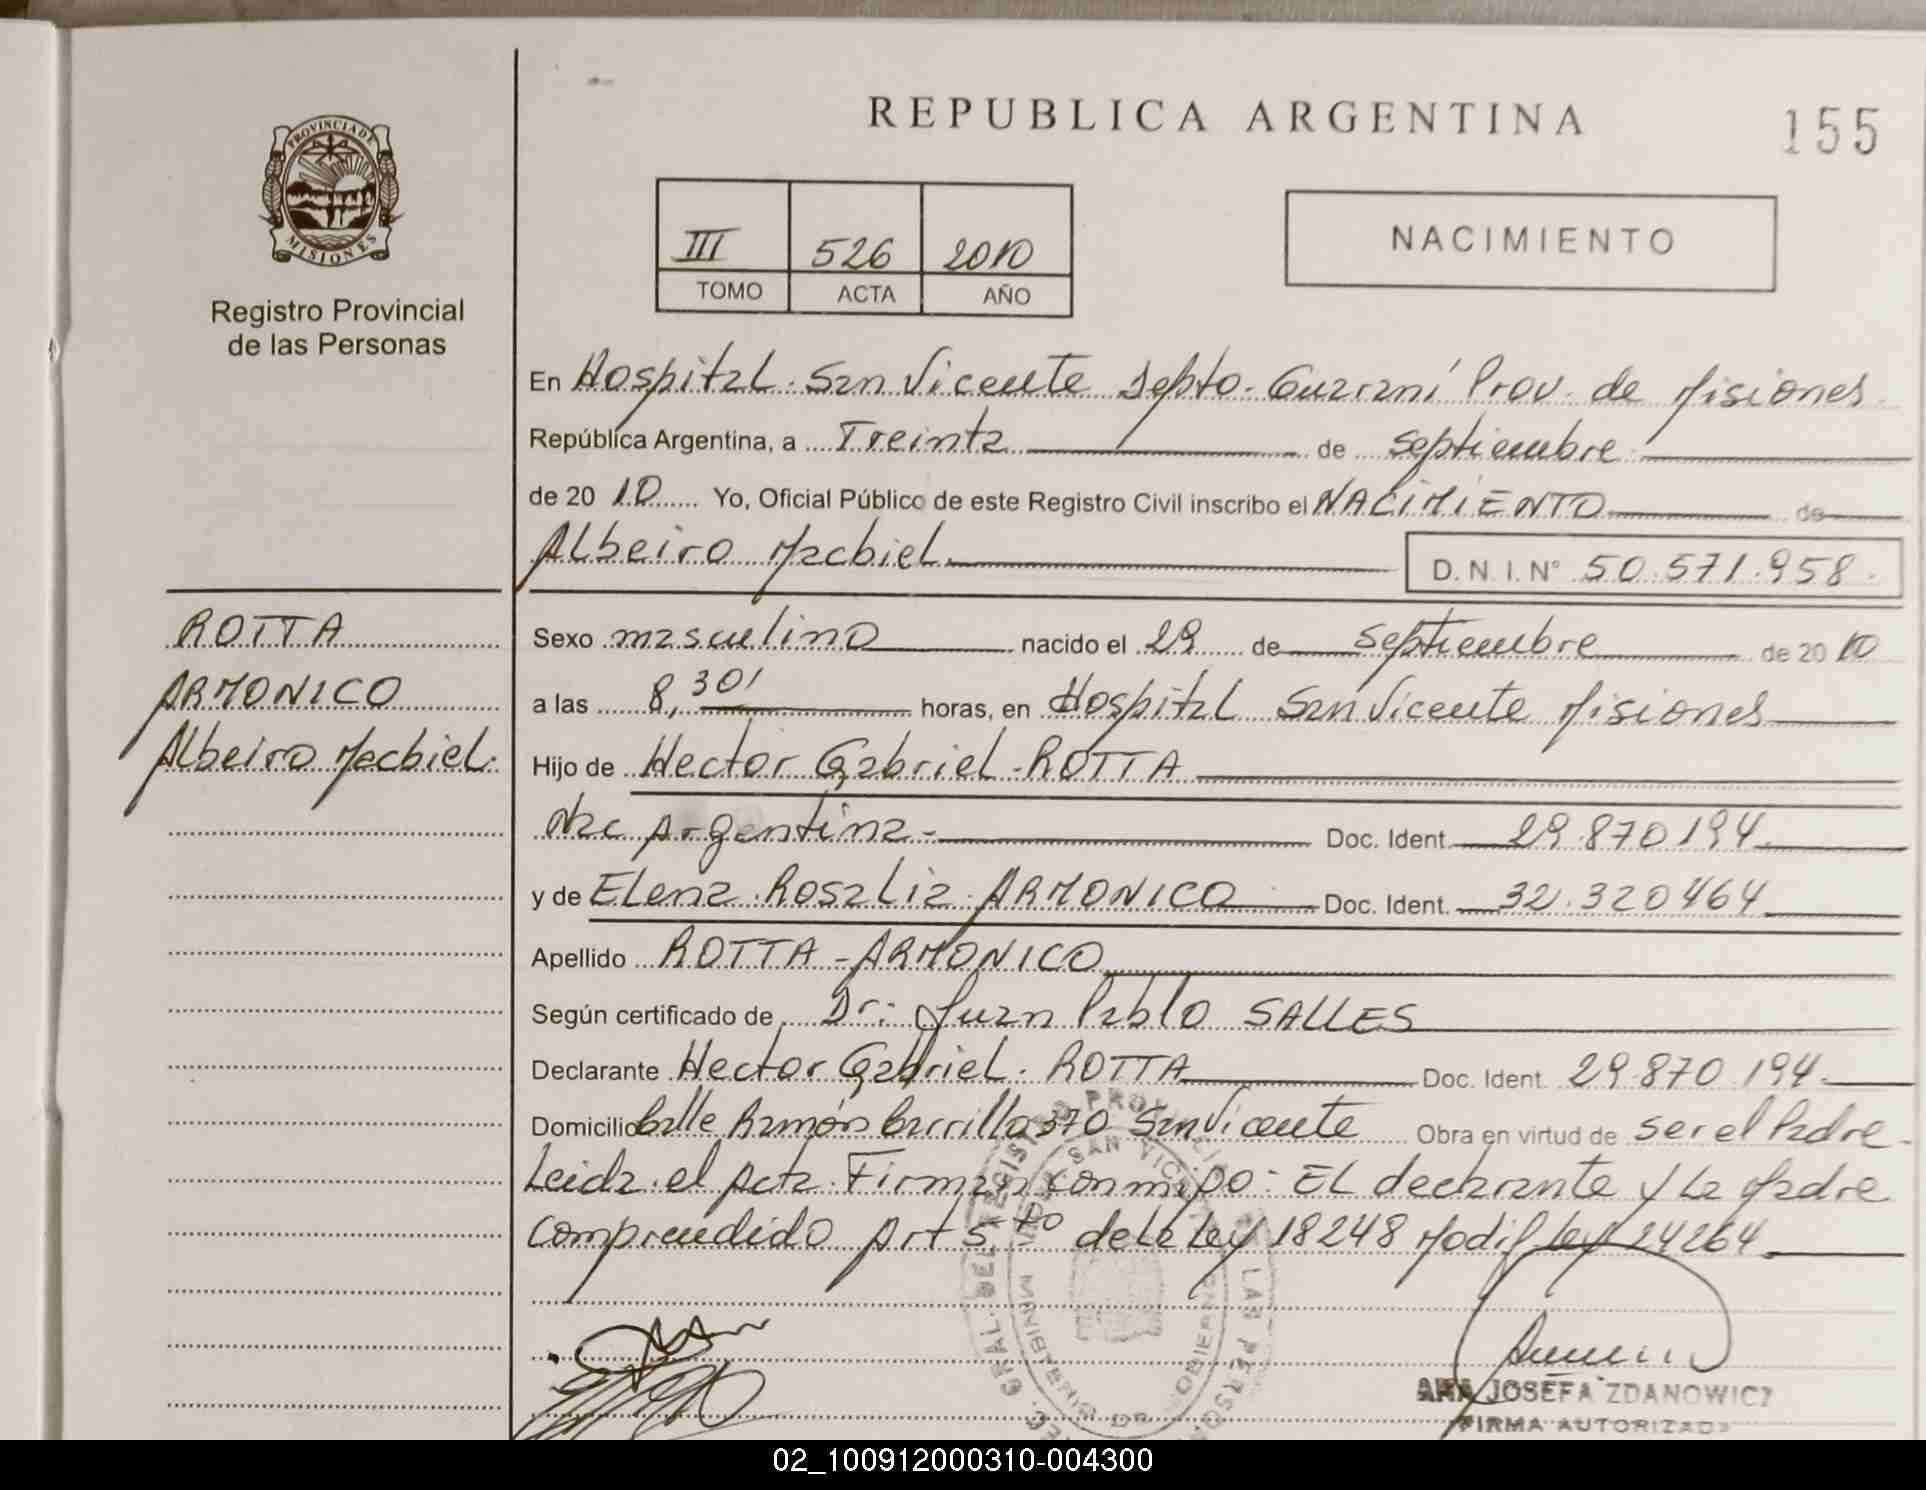 REPUBLICA ARGENTINA
155
PROVINCIA DE MISIONES
Registro Provincial
de las Personas
III 526 2010
TOMO ACTA AÑO
NACIMIENTO
En Hospital San Vicente Depto. Guaraní Prov. de Misiones
República Argentina, a Treinta de Septiembre
de 20 10 Yo, Oficial Público de este Registro Civil inscribo el NACIMIENTO de
Albeiro Macbiel D.N.I.N° 50.571.958.
ROTTA
ARMONICO
Albeiro Macbiel.
Sexo masculino nacido el 29 de Septiembre de 20 10
a las 8,30' horas, en Hospital San Vicente Misiones
Hijo de Hector Gabriel ROTTA
Nac Argentina - Doc. Ident. 29.870194
y de Elena Rosalia ARMONICO Doc. Ident. 32.320464
Apellido ROTTA - ARMONICO
Según certificado de Dr: Juan Pablo SALLES
Declarante Hector Gabriel ROTTA Doc. Ident. 29.870.194.
Domicilio Calle Ramón Carrillo 370 San Vicente Obra en virtud de ser el Padre
Leida el Acta Firman conmigo: El declarante y La Madre
Comprendido Art 5to de la Ley 18248 Modif Ley 24264
ANA JOSEFA ZDANOWICZ
FIRMA AUTORIZADA
02_100912000310-004300